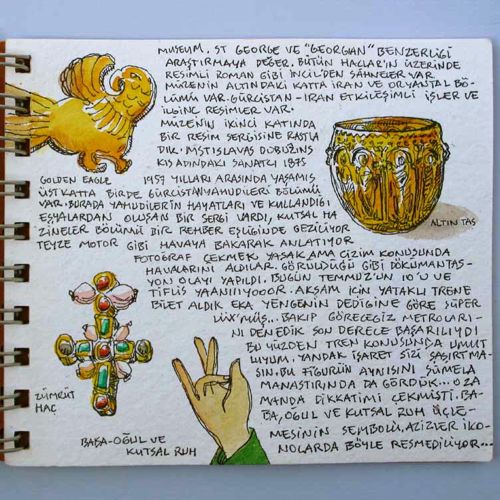 MUSEUM. ST GEORGE VE "GEORGIAN" BENZERLİĞİ
ARAŞTIRMAYA DEĞER. BÜTÜN HAÇLAR'IN ÜZERİNDE
RESİMLİ ROMAN GİBİ İNCİL'DEN SAHNELER VAR.
MÜZENİN ALTINDAKİ KATTA İRAN VE ORYANTAL BÖ-
LÜMÜ VAR. GÜRCİSTAN-İRAN ETKİLEŞİMLİ İŞLER VE
İLGİNÇ RESİMLER VAR.
MÜZENİN İKİNCİ KATINDA
BİR RESİM SERGİSİNE RASTLA
DIK. MSTISLAVAS DOBUŽINS
KIS ADINDAKİ SANATÇI 1875
GOLDEN EAGLE
1957 YILLARI ARASINDA YAŞAMIŞ
ÜST KATTA BİRDE GÜRCİSTAN YAHUDİLERİ BÖLÜMÜ
VAR. BURADA YAHUDİLERİN HAYATLARI VE KULLANDIĞI
EŞYALARDAN OLUŞAN BİR SERGİ VARDI, KUTSAL HA
ZİNELER BÖLÜMÜ BİR REHBER EŞLİĞİNDE GEZİLİYOR
TEYZE MOTOR GİBİ HAVAYA BAKARAK ANLATIYOR
ALTIN TAS
FOTOĞRAF ÇEKMEK YASAK, AMA ÇİZİM KONUSUNDA
HAVALARINI ALDILAR. GÖRÜLDÜĞÜ GİBİ DÖKÜMANTAS-
YON OLAYI YAPILDI. BUGÜN TEMMUZ'UN 10'U VE
TİFLİS YAANIIYOOOR. AKŞAM İÇİN YATAKLI TRENE
BİLET ALDIK EKA YENGENİN DEDİĞİNE GÖRE SÜPER
LÜX'MÜŞ... BAKIP GÖRECEĞİZ METROLARI-
NI DENEDİK SON DERECE BAŞARILIYDI
BU YÜZDEN TREN KONUSUNDA UMUT
LUYUM. YANDAKİ İŞARET SİZİ ŞAŞIRTMA-
SIN. BU FİGÜRÜN AYNISINI SÜMELA
MANASTIRINDA DA GÖRDÜK... O ZA
MANDA DİKKATİMİ ÇEKMİŞTİ. BA-
BA, OĞUL VE KUTSAL RUH ÜÇLE-
MESİNİN SEMBOLÜ, AZİZLER İKO-
NOLARDA BÖYLE RESMEDİLİYOR...
ZÜMRÜT
HAÇ
BABA-OĞUL VE
KUTSAL RUH